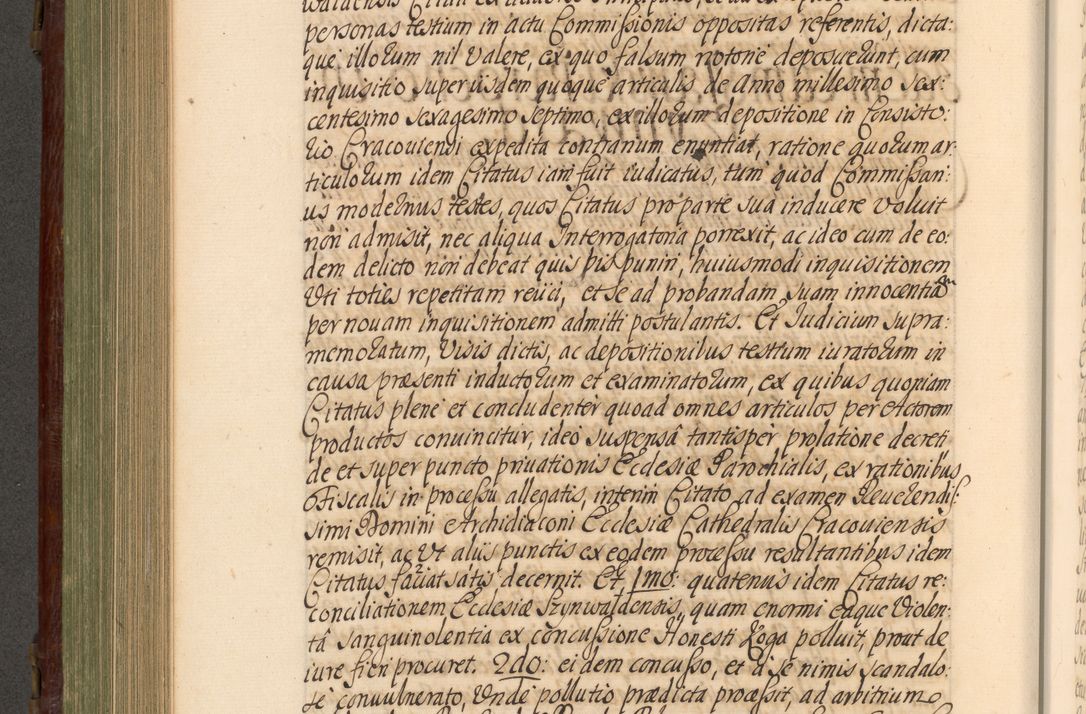 personas testium in actu Commissionis oppositas referentis, dicta:
que illorum nil valere, ex quo falsum notorie deposuerunt, cum
inquisitio super iisdem quoque articulis de Anno millesimo sex:
centesimo sexagesimo septimo, ex illorum depositione in Consisto:
rio Cracouiensi expedita contrarium enuntiat, ratione quorum ar
ticulorum idem Citatus iam fuit iudicatus, tum quod Commissari:
us modernus testes, quos Citatus pro parte sua inducere voluit
non admisit, nec aliqua Interrogatoria porrexit, ac ideo cum de eo:
dem delicto non debeat quis bis puniri, huiusmodi inquisitionem
Uti toties repetitam reiici, et se ad probandam suam innocentiam
per nouam inquisitionem admitti postulantis. Et Iudicium supra:
memoratum, Visis dictis, ac depositionibus testium iuratorum in
causa præsenti inductorum et examinatorum, ex quibus quoniam
Citatus plene et concludenter quoad omnes articulos per Actorem
productos conuincitur, ideo suspensâ tantisper prolatione decreti
de et super puncto priuationis Ecclesiæ Parochialis, ex rationibus
Fiscalis in processu allegatis, interim Citato ad examen Reuerendis:
simi Domini Archidiaconi Ecclesiæ Cathedralis Cracouiensis
remisit, ac Ut aliis punctis ex eodem processu resultantibus idem
Citatus faciat satis decernit. Et 1mo: quatenus idem Citatus re:
conciliationem Ecclesiæ Szynwaldensis, quam enormi eaque Violen:
tâ sanguinolentia ex concussione Honesti Koga polluit, prout de
iure fieri procuret. 2do: eidem concusso, et a se nimis scandalo:
se conuulnerato, Unde pollutio prædicta processit, ad arbitrium